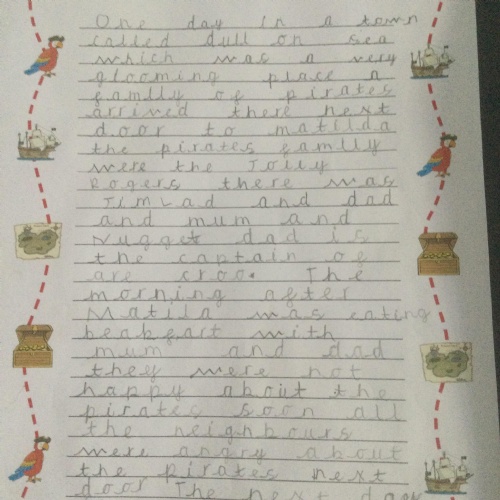 One day in a town
called dull on sea
which was a very
glooming place a
family of pirates
arrived there next
door to matilda
the pirates family
were the Jolly
Rogers there was
Jim Lad and dad
and mum and
Nugget dad is
the captain of
are croo. The
morning after
Matila was eating
beakfart with
mum and dad
they were not
happy about the
pirates soon all
the neighbours
were angry about
the pirates next
door The next day